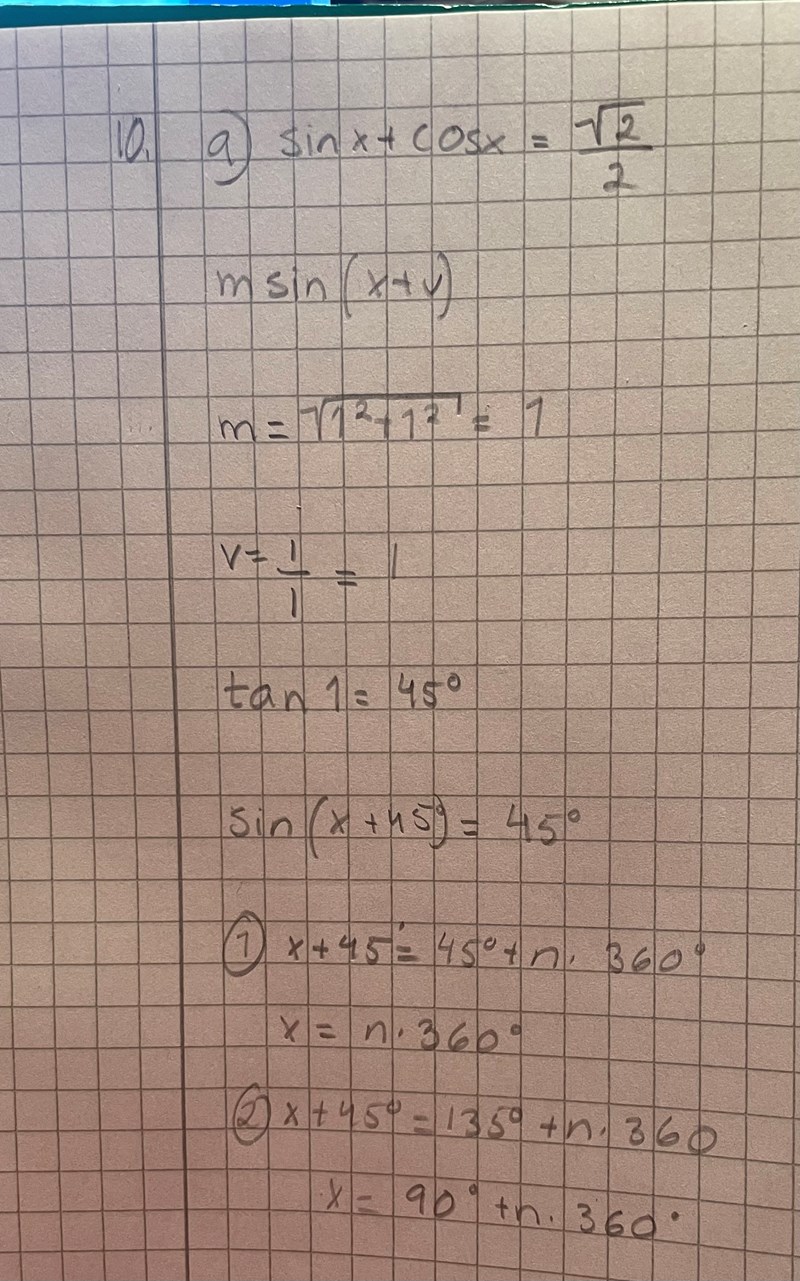 10. a) sinx + cosx = √2/2
m sin (x+v)
m = √1²+1² = 1
v = 1/1 = 1
tan 1 = 45°
sin (x + 45°) = 45°
① x + 45° = 45° + n. 360°
x = n. 360°
② x + 45° = 135° + n. 360
x = 90° + n. 360°